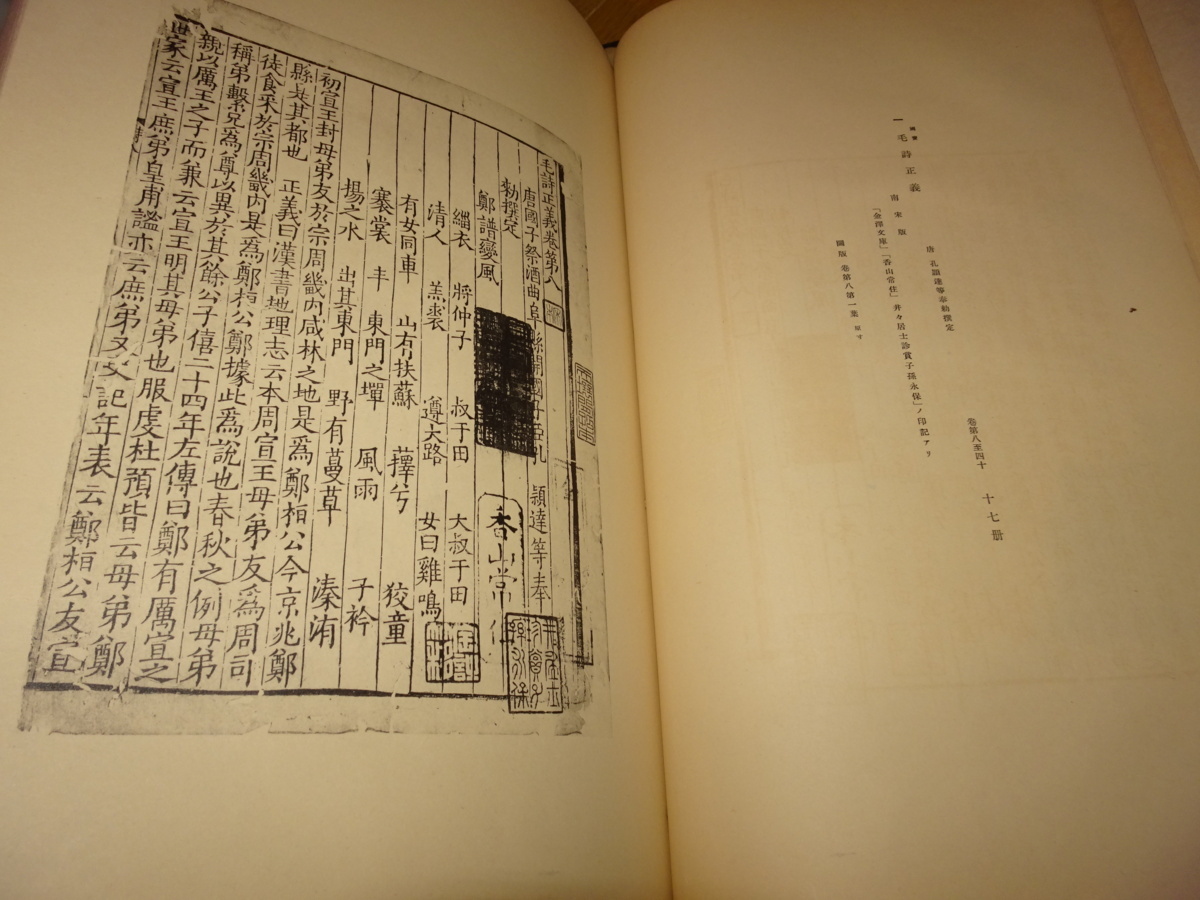 國寶
一 毛詩正義 唐 孔穎達等奉勅撰定 卷第八至四十 十七册
南宋版
「金澤文庫」「香山常住」「井々居士珍賞子孫永保」ノ印記アリ
圖版 卷第八第一葉 縮寸
毛詩正義卷第八
唐國子祭酒曲阜縣開國子臣孔 穎達等奉
勑撰定
香山常住
鄭譜變風
緇衣 將仲子 叔于田 大叔于田
清人 羔裘 遵大路 女曰雞鳴
有女同車 山有扶蘇 蘀兮 狡童
褰裳 丰 東門之墠 風雨 子衿
揚之水 出其東門 野有蔓草 溱洧
初宣王封母弟友於宗周畿內咸林之地是爲鄭桓公今京兆鄭
縣是其都也 正義曰漢書地理志云本周宣王母弟友爲周司
徒食采於宗周畿內是爲鄭桓公鄭據此爲說也春秋之例母弟
稱弟繫兄爲尊以異於其餘公子僖二十四年左傳曰鄭有厲宣之
親以厲王之子而兼云宣王明其母弟也服虔杜預皆云母弟鄭
世家云宣王庶弟皇甫謐亦云庶弟又史記年表云鄭桓公友宣